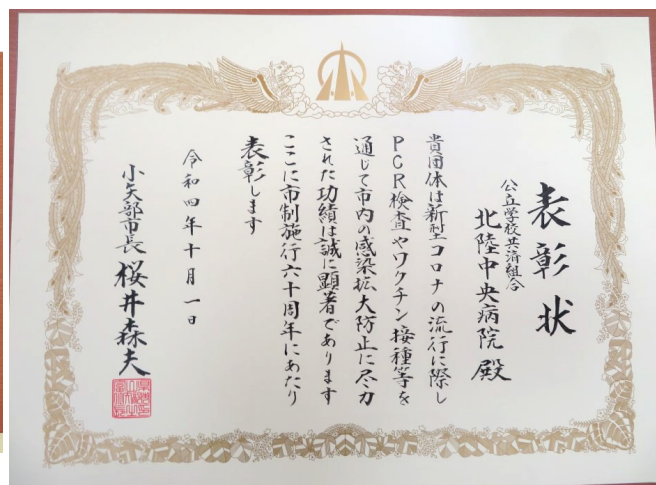 表彰状
公立学校共済組合
北陸中央病院 殿
貴団体は新型コロナの流行に際し
PCR検査やワクチン接種等を
通じて市内の感染拡大防止に尽力
された功績は誠に顕著であります
ここに市制施行六十周年にあたり
表彰します
令和四年十月一日
小矢部市長 桜井森夫